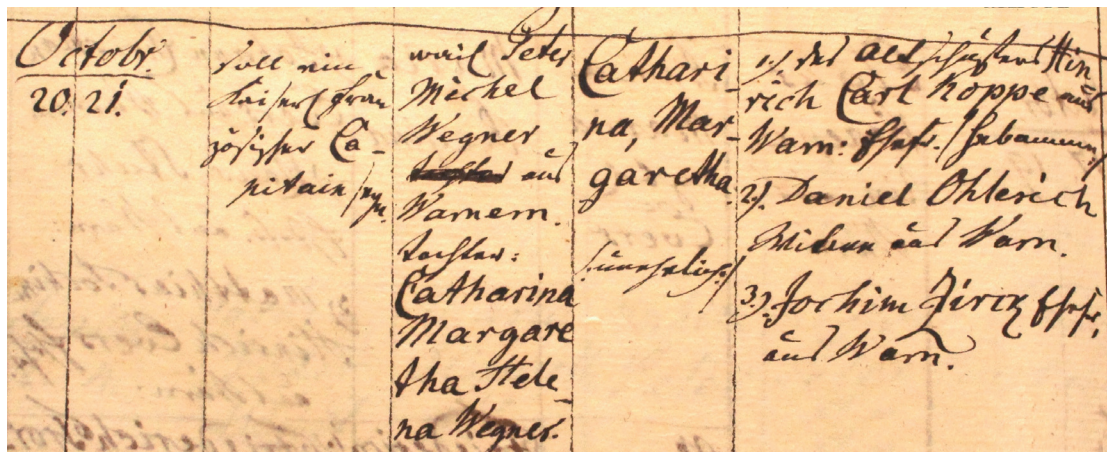 Octobr.
20. 21.
soll ein
Kaiserl. Fran
zösischer Ca-
pitain seyn.
weil Peter
Michel
Wegner
tochter aus
Warnem.
tochter:
Catharina
Margare
tha Hele-
na Wegner.
Cathari-
na, Mar-
garetha.
/:unehelich:/
1.) des Altschusters Hin
rich Carl Koppe aus
Warn: Ehefr. /Hebamme/
2.) Daniel Ohlerich
Witwe aus Warn.
3.) Jochim Zirck Ehefr.
aus Warn.